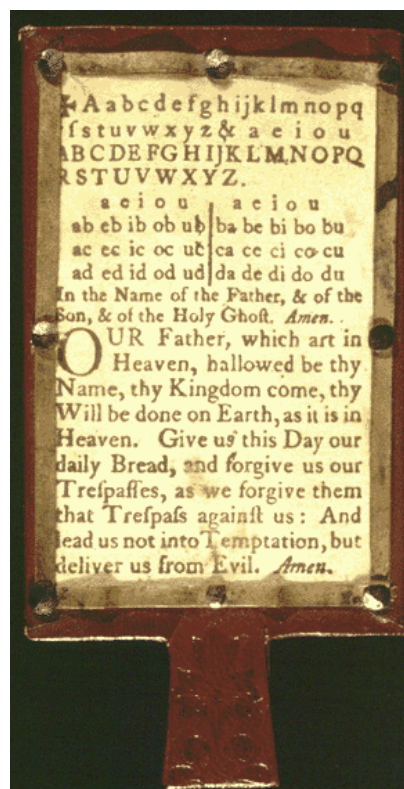 ✠ A a b c d e f g h i j k l m n o p q
r ſ s t u v w x y z & a e i o u
A B C D E F G H I J K L M N O P Q
R S T U V W X Y Z.
a e i o u a e i o u
ab eb ib ob ub ba be bi bo bu
ac ec ic oc uc ca ce ci co cu
ad ed id od ud da de di do du
In the Name of the Father, & of the
Son, & of the Holy Ghoſt. Amen.
OUR Father, which art in
Heaven, hallowed be thy
Name, thy Kingdom come, thy
Will be done on Earth, as it is in
Heaven. Give us this Day our
daily Bread, and forgive us our
Treſpaſſes, as we forgive them
that Treſpaſs againſt us : And
lead us not into Temptation, but
deliver us from Evil. Amen.